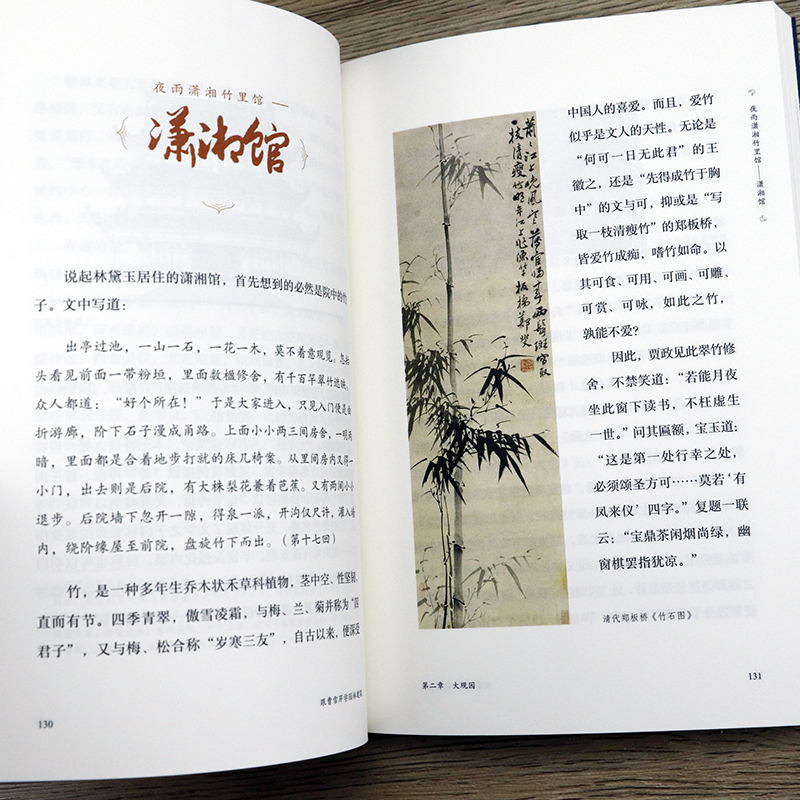 夜雨潇湘竹里馆——
潇湘馆
说起林黛玉居住的潇湘馆，首先想到的必然是院中的竹
子。文中写道：
出亭过池，一山一石，一花一木，莫不着意观览。忽抬
头看见前面一带粉垣，里面数楹修舍，有千百竿翠竹遮映。
众人都道：“好个所在！”于是大家进入，只见入门便是曲
折游廊，阶下石子漫成甬路。上面小小两三间房舍，一明两
暗，里面都是合着地步打就的床几椅案。从里间房内又得一
小门，出去则是后院，有大株梨花兼着芭蕉。又有两间小小
退步。后院墙下忽开一隙，得泉一派，开沟仅尺许，灌入墙
内，绕阶缘屋至前院，盘旋竹下而出。（第十七回）
竹，是一种多年生乔木状禾草科植物，茎中空、性坚韧，
直而有节。四季青翠，傲雪凌霜，与梅、兰、菊并称为“四
君子”，又与梅、松合称“岁寒三友”，自古以来，便深受
130
中国人的喜爱。而且，爱竹
似乎是文人的天性。无论是
“何可一日无此君”的王
徽之，还是“先得成竹于胸
中”的文与可，抑或是“写
取一枝清瘦竹”的郑板桥，
皆爱竹成痴，嗜竹如命。以
其可食、可用、可画、可雕、
可赏、可咏，如此之竹，
孰能不爱？
因此，贾政见此翠竹修
舍，不禁笑道：“若能月夜
坐此窗下读书，不枉虚生
一世。”问其匾额，宝玉道：
“这是第一处行幸之处，
必须颂圣方可……莫若‘有
凤来仪’四字。”复题一联
云：“宝鼎茶闲烟尚绿，幽
窗棋罢指犹凉。”
清代郑板桥《竹石图》
夜雨潇湘竹里馆——潇湘馆
第二章 大观园
131